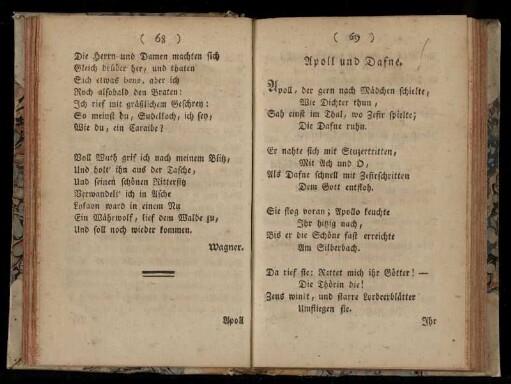 ( 68 )
Die Herrn und Damen machten sich
Gleich drüber her, und thaten
Sich etwas bene, aber ich
Roch alsobald den Braten:
Ich rief mit gräßlichem Geschrey:
So meinst du, Sudelkoch, ich sey,
Wie du, ein Caraibe?
Voll Wuth grif ich nach meinem Blitz,
Und holt' ihn aus der Tasche,
Und seinen schönen Rittersitz
Verwandelt' ich in Asche
Lykaon ward in einem Nu
Ein Währwolf, lief dem Walde zu,
Und soll noch wieder kommen.
Wagner.
Apoll
( 69 )
Apoll und Dafne.
Apoll, der gern nach Mädchen schielte,
Wie Dichter thun,
Sah einst im Thal, wo Zefir spielte;
Die Dafne ruhn.
Er nahte sich mit Stutzertritten,
Mit Ach und O,
Als Dafne schnell mit Zefirschritten
Dem Gott entfloh.
Sie flog voran; Apollo keuchte
Ihr hitzig nach,
Bis er die Schöne fast erreichte
Am Silberbach.
Da rief sie: Rettet mich ihr Götter! —
Die Thörin die!
Zeus winkt, und starre Lorbeerblätter
Umfliegen sie.
Ihr